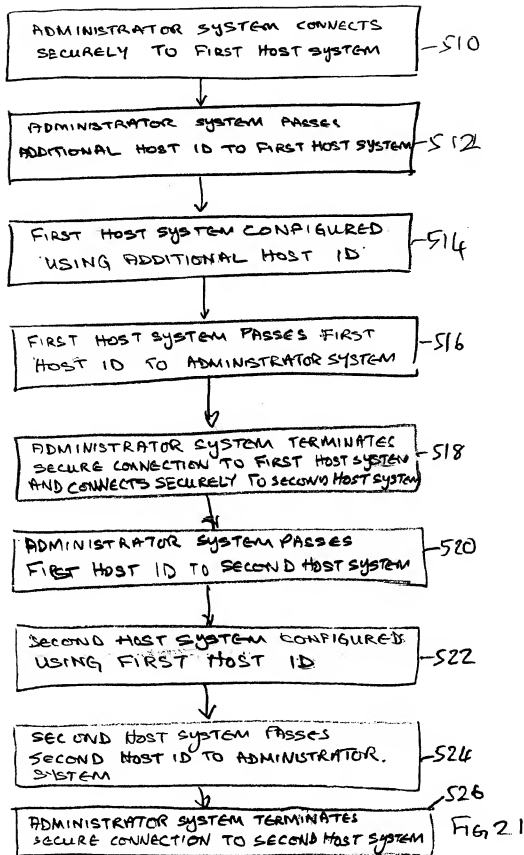 ADMINISTRATOR SYSTEM CONNECTS
SECURELY TO FIRST HOST SYSTEM
510
ADMINISTRATOR SYSTEM PASSES
ADDITIONAL HOST ID TO FIRST HOST SYSTEM
512
FIRST HOST SYSTEM CONFIGURED
USING ADDITIONAL HOST ID
514
FIRST HOST SYSTEM PASSES FIRST
HOST ID TO ADMINISTRATOR SYSTEM
516
ADMINISTRATOR SYSTEM TERMINATES
SECURE CONNECTION TO FIRST HOST SYSTEM
AND CONNECTS SECURELY TO SECOND HOST SYSTEM
518
ADMINISTRATOR SYSTEM PASSES
FIRST HOST ID TO SECOND HOST SYSTEM
520
SECOND HOST SYSTEM CONFIGURED
USING FIRST HOST ID
522
SECOND HOST SYSTEM PASSES
SECOND HOST ID TO ADMINISTRATOR.
SYSTEM
524
ADMINISTRATOR SYSTEM TERMINATES
SECURE CONNECTION TO SECOND HOST SYSTEM
526
FIG 21